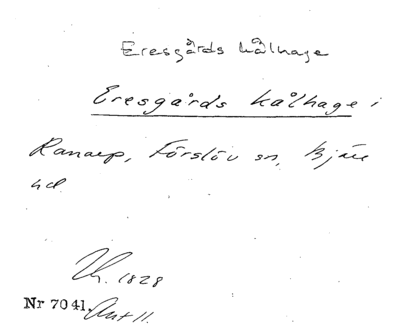 Eresgårds kålhage
Eresgårds kålhage i
Ranarp, Förslöv sn, Bjäre
hd.
Lh. 1828
Nr 7041. Ant 11.